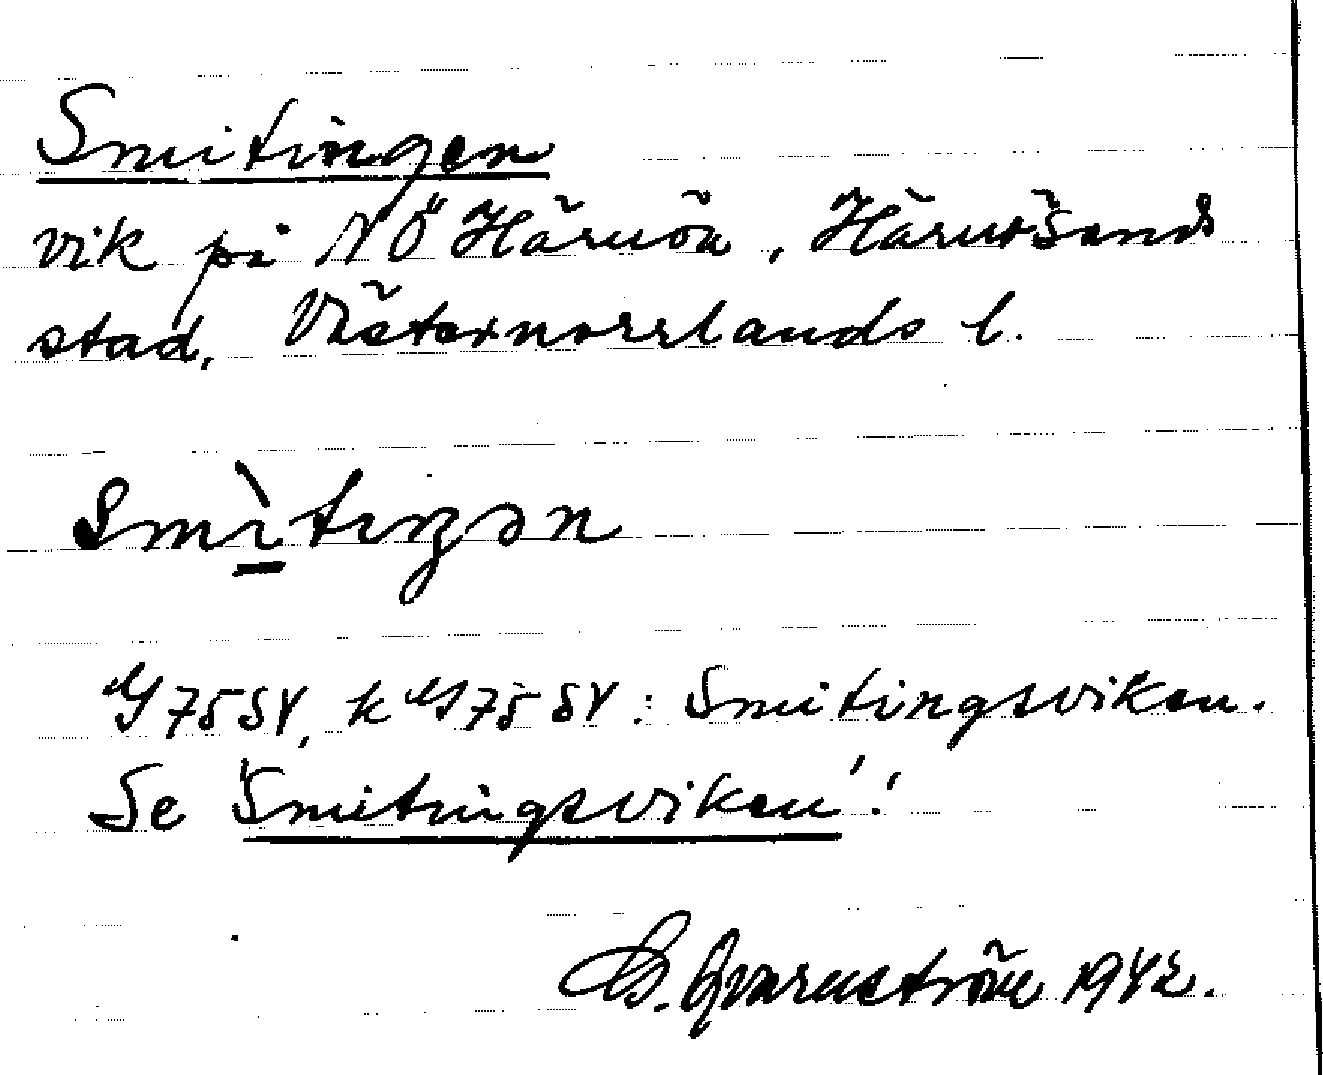 Smitingen
vik på NÖ Härnön, Härnösands
stad, Västernorrlands l.
Smìtiŋən
G 75 SV, k G 75 SV: Smitingsviken.
Se Smitingsviken!
B. Qvarnström 1942.